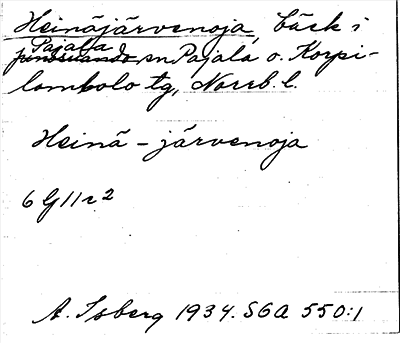 Heinäjärvenoja, bäck i
Pajala
Junosuando sn Pajala o. Korpi-
lombolo tg, Norrb. l.
Heinä - järvenoja
6 G 11 r 2
A. Isberg 1934. SGA 550:1